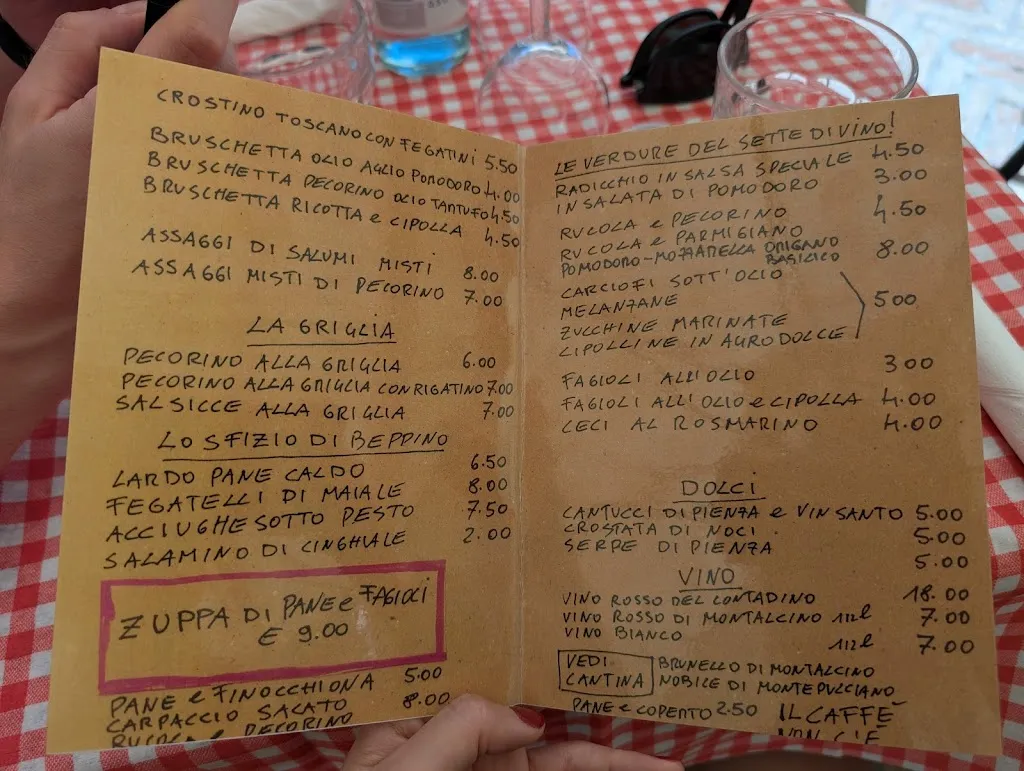 CROSTINO TOSCANO CON FEGATINI 5.50
BRUSCHETTA OLIO AGLIO POMODORO 4.00
BRUSCHETTA PECORINO OLIO TARTUFO 4.50
BRUSCHETTA RICOTTA e CIPOLLA 4.50
ASSAGGI DI SALUMI MISTI 8.00
ASSAGGI MISTI DI PECORINO 7.00
LA GRIGLIA
PECORINO ALLA GRIGLIA 6.00
PECORINO ALLA GRIGLIA CON RIGATINO 7.00
SALSICCE ALLA GRIGLIA 7.00
LO SFIZIO DI BEPPINO
LARDO PANE CALDO 6.50
FEGATELLI DI MAIALE 8.00
ACCIUGHE SOTTO PESTO 7.50
SALAMINO DI CINGHIALE 2.00
ZUPPA DI PANE e FAGIOLI
€ 9.00
PANE e FINOCCHIONA 5.00
CARPACCIO SALATO 8.00
RUCOLA e PECORINO
LE VERDURE DEL SETTE DI VINO!
RADICCHIO IN SALSA SPECIALE 4.50
INSALATA DI POMODORO 3.00
RUCOLA e PECORINO 4.50
RUCOLA e PARMIGIANO
POMODORO-MOZZARELLA ORIGANO BASILICO 8.00
CARCIOFI SOTT'OLIO
MELANZANE 500
ZUCCHINE MARINATE
CIPOLLINE IN AGRODOLCE
FAGIOLI ALL'OLIO 300
FAGIOLI ALL'OLIO e CIPOLLA 4.00
CECI AL ROSMARINO 4.00
DOLCI
CANTUCCI DI PIENZA e VIN SANTO 5.00
CROSTATA DI NOCI 5.00
SERPE DI PIENZA 5.00
VINO
VINO ROSSO DEL CONTADINO 18.00
VINO ROSSO DI MONTALCINO 1/2 l 7.00
VINO BIANCO 1/2 l 7.00
VEDI CANTINA
BRUNELLO DI MONTALCINO
NOBILE DI MONTEPULCIANO
PANE e COPERTO 2.50
IL CAFFÈ
NON C'È